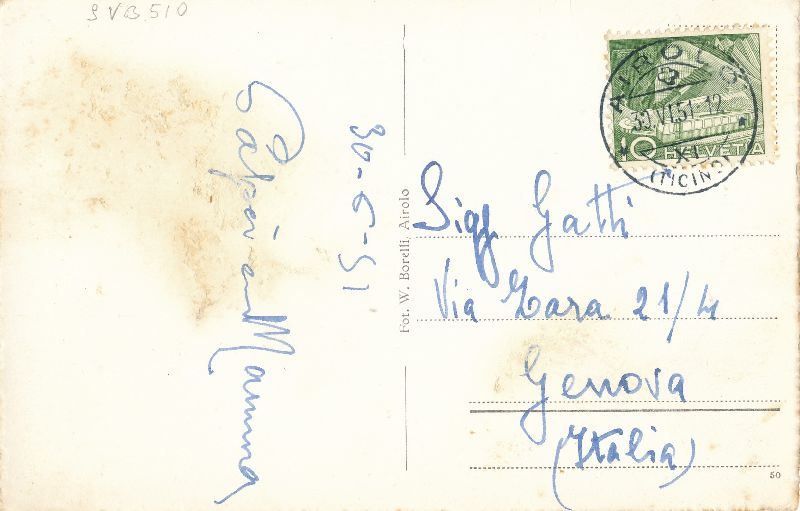 SVB510
30-6-51
Papà e Mamma
Fot. W. Borelli, Airolo
AIROLO
30.VI.51-12
XI
(TICINO)
10 HELVETIA
Sigg Gatti
Via Zara 21/4
Genova
(Italia)
50